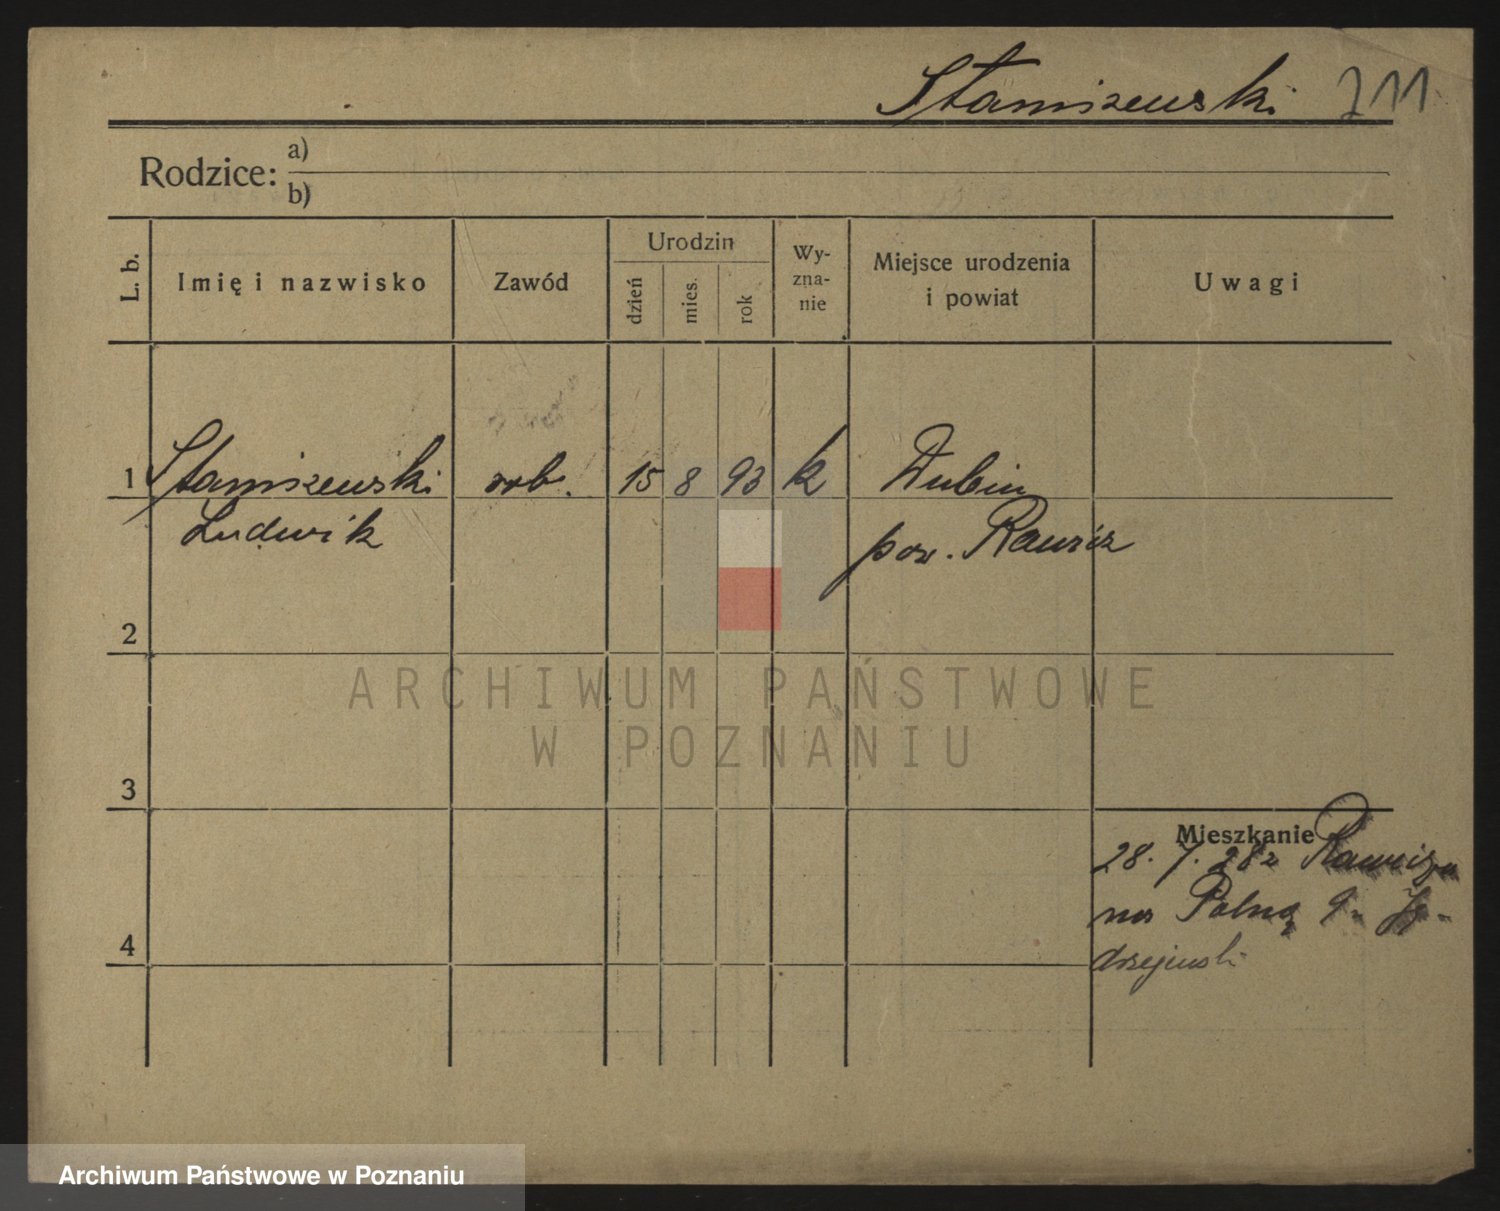 Staniszewski 211
Rodzice: a)
b)
L. b.
Imię i nazwisko
Zawód
Urodzin
dzień
mies.
rok
Wy-
zna-
nie
Miejsce urodzenia
i powiat
Uwagi
1 Staniszewski rob. 15 8 93 k Dubin
Ludwik pow. Rawicz
2
ARCHIWUM PAŃSTWOWE
W POZNANIU
3
Mieszkanie
28. 7. 28 z Rawicza
na Polną 9
drzejewski
4
Archiwum Państwowe w Poznaniu